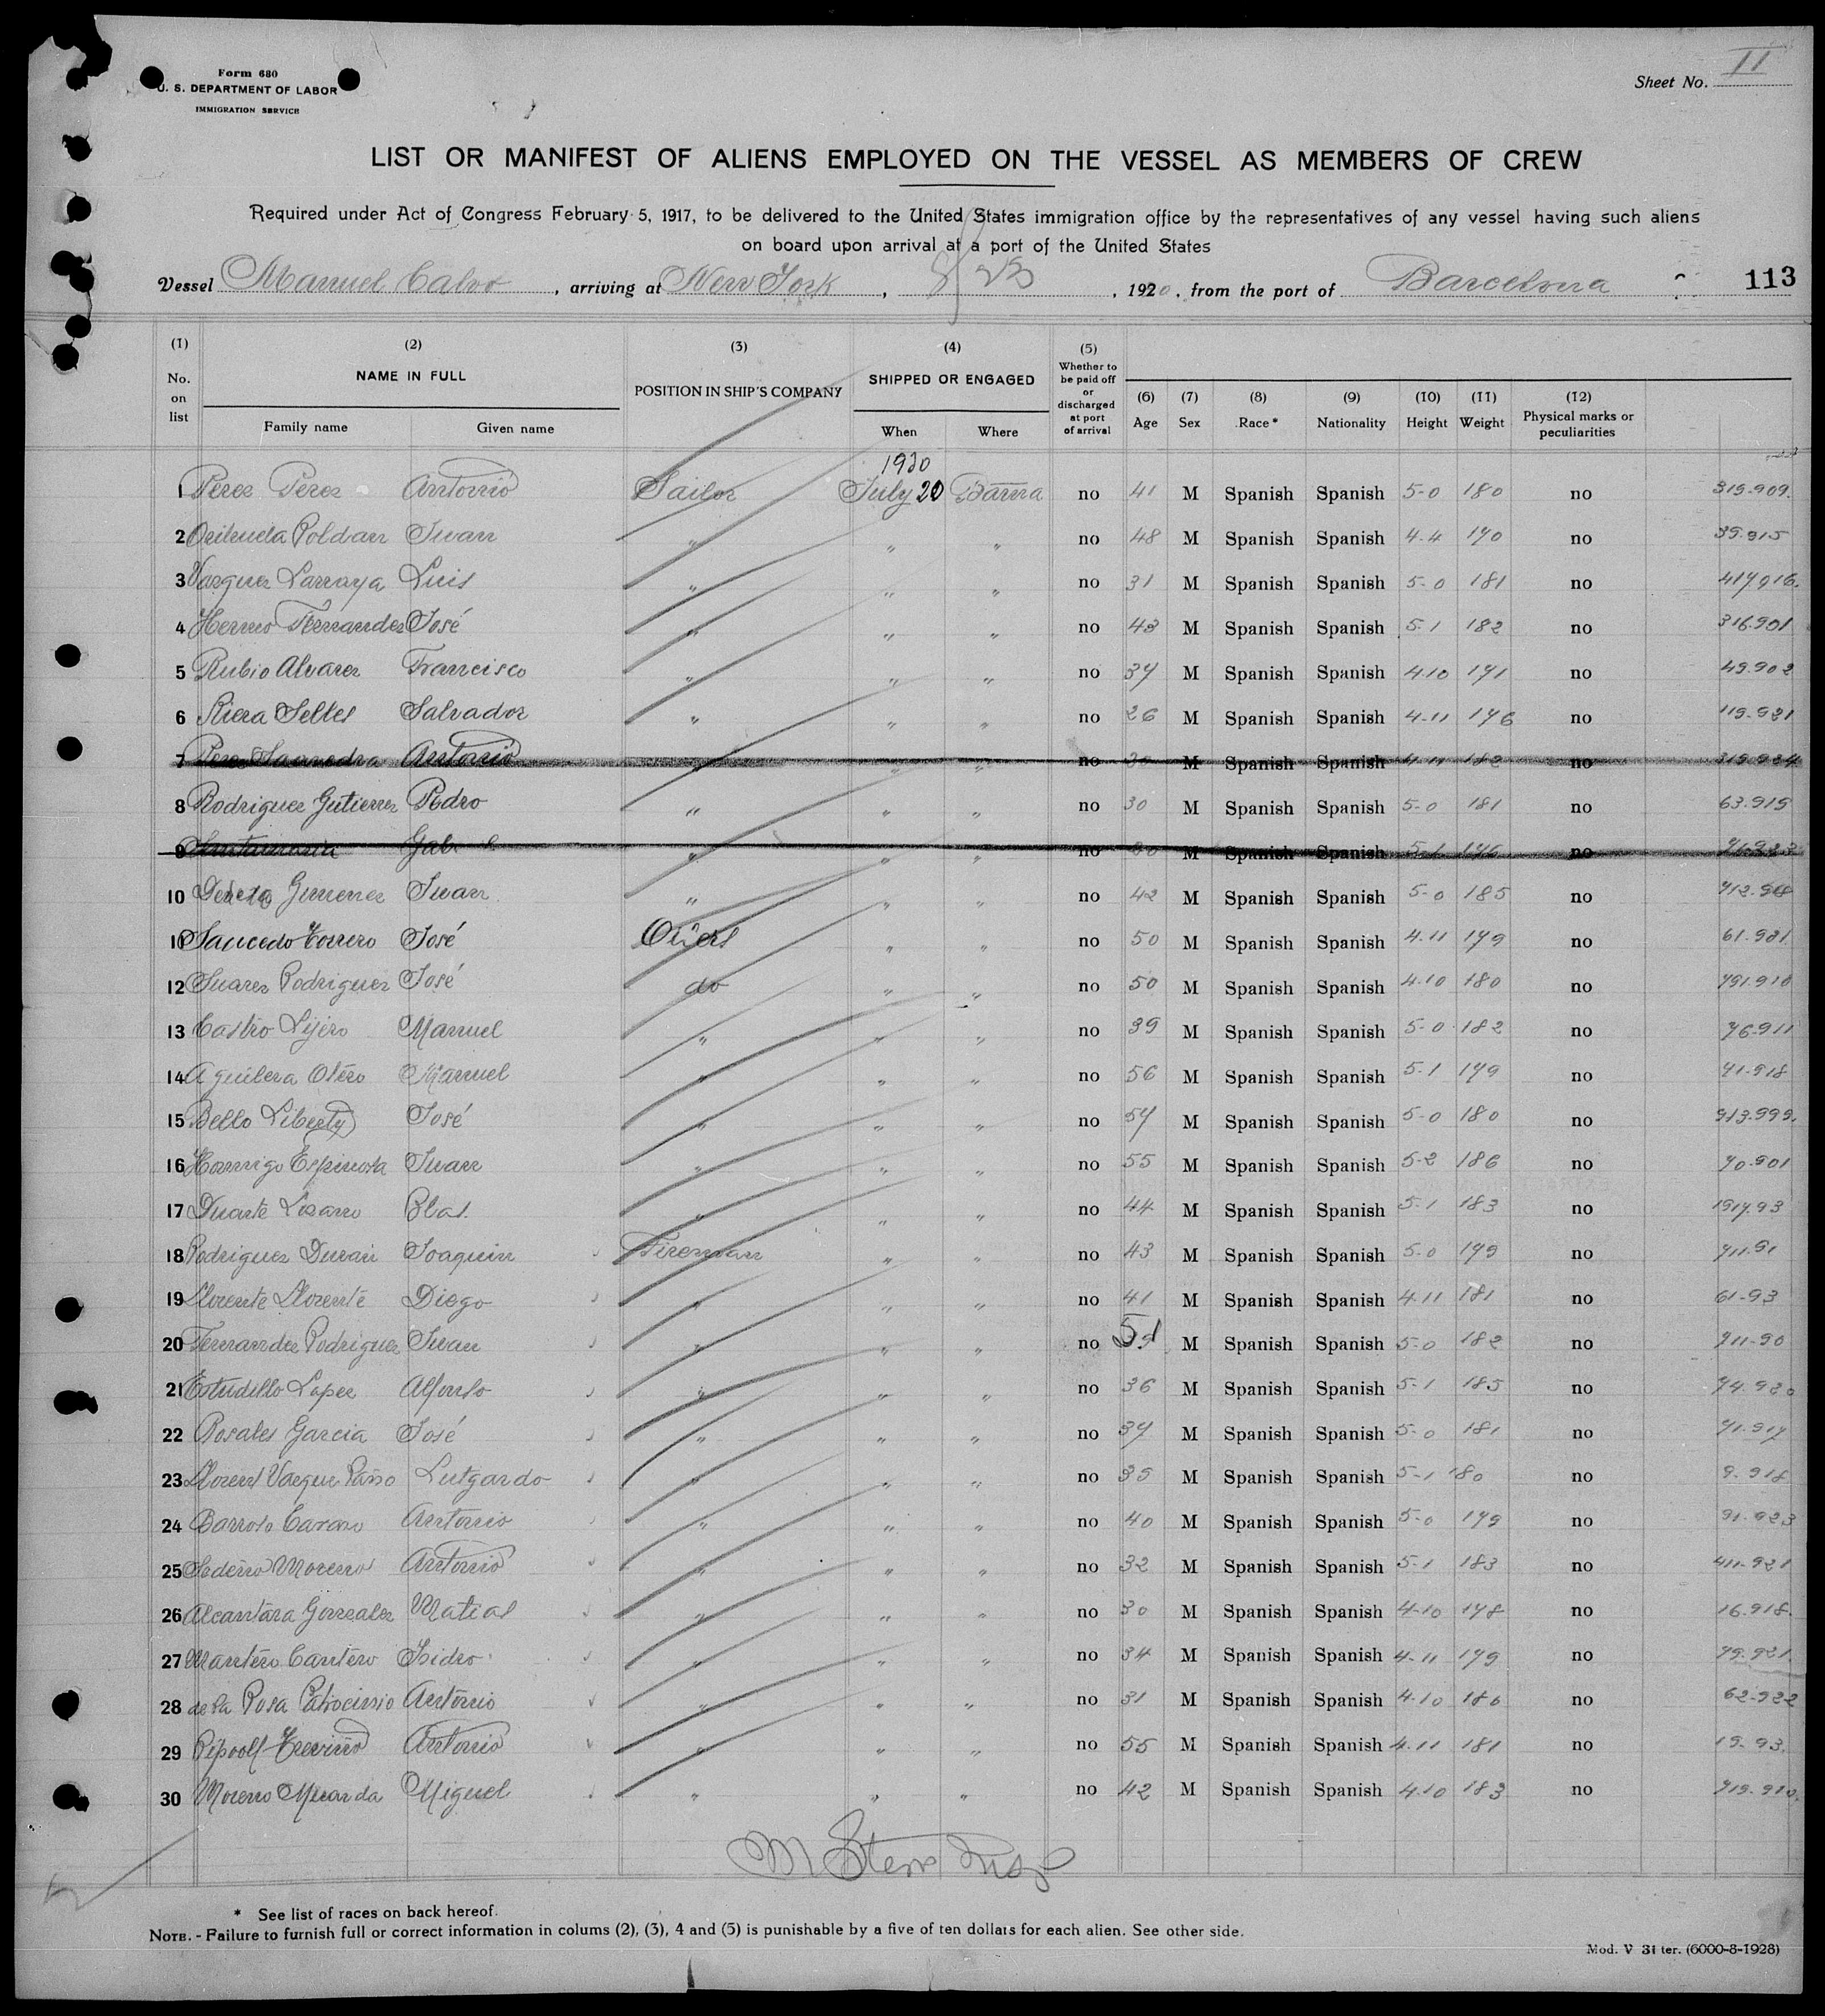 Form 680
U. S. DEPARTMENT OF LABOR
IMMIGRATION SERVICE
Sheet No. II
LIST OR MANIFEST OF ALIENS EMPLOYED ON THE VESSEL AS MEMBERS OF CREW
Required under Act of Congress February 5, 1917, to be delivered to the United States immigration office by the representatives of any vessel having such aliens
on board upon arrival at a port of the United States
Vessel Manuel Calvo, arriving at New York, 8/23, 1920, from the port of Barcelona 113
(1) (2) (3) (4) (5)
No. on list NAME IN FULL POSITION IN SHIP'S COMPANY SHIPPED OR ENGAGED Whether to be paid off or discharged at port of arrival (6) (7) (8) (9) (10) (11) (12)
Family name Given name When Where Age Sex Race* Nationality Height Weight Physical marks or peculiarities
1930
1 Perez Perez Antonio Sailor July 20 Barna no 41 M Spanish Spanish 5-0 180 no 319-909.
2 Orihuela Roldan Juan " " " no 48 M Spanish Spanish 4-4 170 no 39-915
3 Vazquez Larraya Luis " " " no 31 M Spanish Spanish 5-0 181 no 417.916.
4 Hermo Fernandez José " " " no 43 M Spanish Spanish 5-1 182 no 316.901
5 Rubio Alvarez Francisco " " " no 37 M Spanish Spanish 4-10 171 no 49.902
6 Riera Selles Salvador " " " no 26 M Spanish Spanish 4-11 176 no 119-921
7 Perez Saavedra Antonio " " " no 30 M Spanish Spanish 4-11 182 no 319.924
8 Rodriguez Gutierrez Pedro " " " no 30 M Spanish Spanish 5-0 181 no 63.919
9 Santamaria " " " no M Spanish Spanish 5-1 176 no
10 Gimenez Juan " " " no 42 M Spanish Spanish 5-0 185 no
11 Saucedo Torrero José Oilers " " no 50 M Spanish Spanish 4-11 179 no 61-921
12 Suarez Rodriguez José do " " no 50 M Spanish Spanish 4-10 180 no 791.910
13 Castro Lijero Manuel " " " no 39 M Spanish Spanish 5-0 182 no 76-911
14 Aguilera Otero Manuel " " " no 56 M Spanish Spanish 5-1 179 no 71-918
15 Bello Liberty José " " " no 57 M Spanish Spanish 5-0 180 no 913.999.
16 Espinosa Juan " " " no 55 M Spanish Spanish 5-2 186 no 70-901
17 Duarte Lozano Blas. " " " no 44 M Spanish Spanish 5-1 183 no 1917.93
18 Rodriguez Duran Joaquin Fireman " " no 43 M Spanish Spanish 5-0 179 no 711-91
19 Llorente Llorente Diego " " " no 41 M Spanish Spanish 4-11 181 no 61-93
20 Fernandez Rodriguez Juan " " " no 51 M Spanish Spanish 5-0 182 no 711-90
21 Estudillo Lopez Alfonso " " " no 36 M Spanish Spanish 5-1 185 no 74.920
22 Rosales Garcia José " " " no 37 M Spanish Spanish 5-0 181 no 71.917
23 Llorent Lutgardo " " " no 35 M Spanish Spanish 5-1 180 no 9.918
24 Barroso Antonio " " " no 40 M Spanish Spanish 5-0 179 no 91-923
25 Moreno Antonio " " " no 32 M Spanish Spanish 5-1 183 no 411-921
26 Alcantara Gonzalez Matias " " " no 30 M Spanish Spanish 4-10 178 no 16.918.
27 Mantero Cantero Isidro " " " no 34 M Spanish Spanish 4-11 179 no 79.921
28 de la Rosa Patrocinio Antonio " " " no 31 M Spanish Spanish 4-10 186 no 62-922
29 Ripoolf Treviño Antonio " " " no 55 M Spanish Spanish 4-11 181 no 19-93.
30 Moreno Miranda Miguel " " " no 42 M Spanish Spanish 4-10 183 no 719-910.
* See list of races on back hereof.
NOTE. - Failure to furnish full or correct information in colums (2), (3), 4 and (5) is punishable by a five of ten dollars for each alien. See other side.
Mod. V 31 ter. (6000-8-1928)